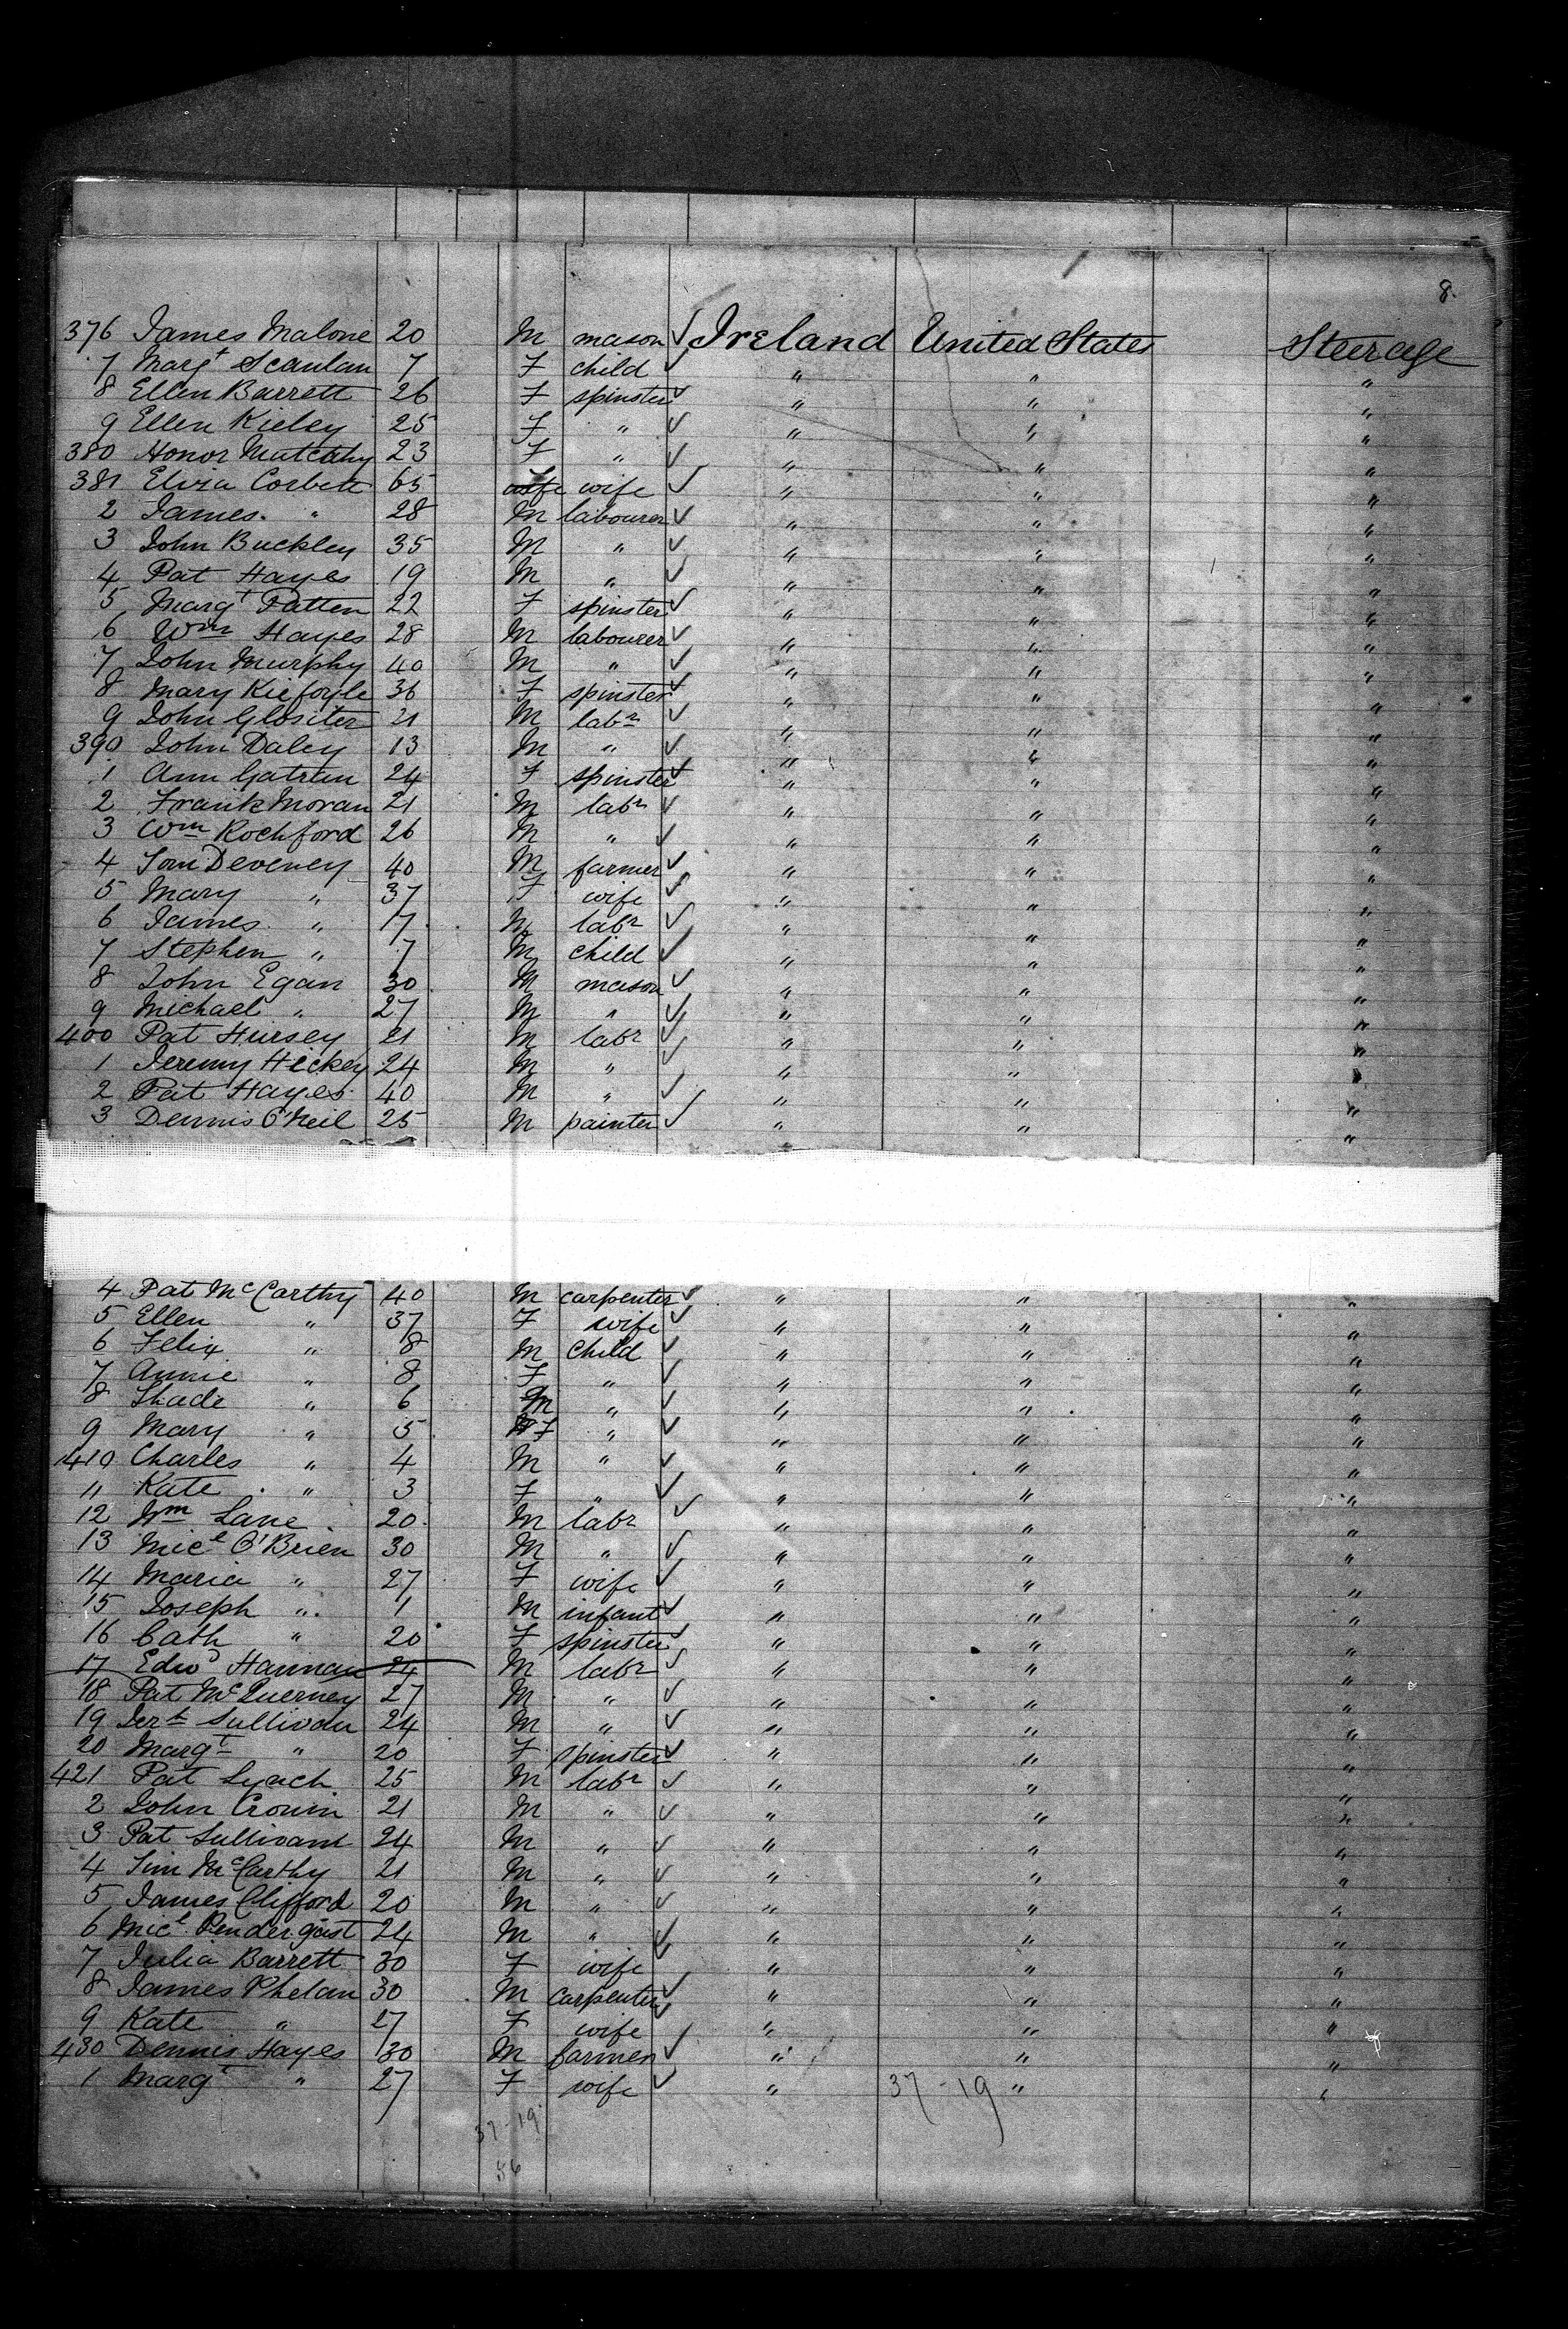 8.
376 James Malone 20 M mason ✓ Ireland United States Steerage
7 Margt Scanlan 7 F child ✓ " " "
8 Ellen Barrett 26 F spinster ✓ " " "
9 Ellen Kieley 25 F " ✓ " " "
380 Honor Mulcahy 23 F " ✓ " " "
381 Eliza Corbett 65 wife wife ✓ " " "
2 James " 28 M labourer ✓ " " "
3 John Buckley 35 M " ✓ " " "
4 Pat Hayes 19 M " ✓ " " "
5 Margt Patten 22 F spinster ✓ " " "
6 Wm Hayes 28 M labourer ✓ " " "
7 John Murphy 40 M " ✓ " " "
8 Mary Kiefoyle 36 F spinster ✓ " " "
9 John Glositer 21 M labr ✓ " " "
390 John Daley 13 M " ✓ " " "
1 Ann Gatran 24 F spinster ✓ " " "
2 Frank Moran 21 M labr ✓ " " "
3 Wm Rochford 26 M " ✓ " " "
4 Tom Deveney 40 M farmer ✓ " " "
5 Mary " 37 F wife ✓ " " "
6 James " 17 M labr ✓ " " "
7 Stephen " 7 M child ✓ " " "
8 John Egan 30 M mason ✓ " " "
9 Michael " 27 M " ✓ " " "
400 Pat Hursey 21 M labr ✓ " " "
1 Jeremy Hickey 24 M " ✓ " " "
2 Pat Hayes 40 M " ✓ " " "
3 Dennis O'Neil 25 M painter ✓ " " "
4 Pat McCarthy 40 M carpenter ✓ " " "
5 Ellen " 37 F wife ✓ " " "
6 Felix " 8 M child ✓ " " "
7 Annie " 8 F " ✓ " " "
8 Thade " 6 M " ✓ " " "
9 Mary " 5 F " ✓ " " "
410 Charles " 4 M " ✓ " " "
11 Kate " 3 F " ✓ " " "
12 Wm Lane 20 M labr ✓ " " "
13 Micl O'Brien 30 M " ✓ " " "
14 Maria " 27 F wife ✓ " " "
15 Joseph " 1 M infant ✓ " " "
16 Cath " 20 F spinster ✓ " " "
17 Edwd Hannan 24 M labr ✓ " " "
18 Pat McQuerney 27 M " ✓ " " "
19 Jerh Sullivan 24 M " ✓ " " "
20 Margt " 20 F spinster ✓ " " "
421 Pat Lynch 25 M labr ✓ " " "
2 John Cronin 21 M " ✓ " " "
3 Pat Sullivant 24 M " ✓ " " "
4 Tim McCarthy 21 M " ✓ " " "
5 James Clifford 20 M " ✓ " " "
6 Micl Pendergast 24 M " ✓ " " "
7 Julia Barrett 30 F wife " " "
8 James Phelan 30 M carpenter ✓ " " "
9 Kate " 27 F wife ✓ " " "
430 Dennis Hayes 30 M farmer ✓ " " "
1 Margt " 27 F wife ✓ " 37-19 " "
37-19
56